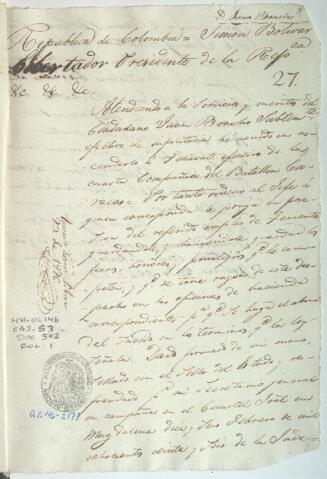 D. Juan Bracho
Republica de Colombia = Simon Bolivar
Libertador Presidente de la Repca
&c &c &c
27.
Atendiendo a los servicios y meritos del
Ciudadano Juan Bracho Subtente
efectivo de infanteria he venido en as-
cenderlo a Teniente efectivo de la
cuarta Compañia del Batallon Ca-
racas = Por tanto ordeno al Jefe a
quien corresponda le ponga en pose-
sion del referido empleo de Teniente
guardandole, y haciendole guardar los
fueros, honores, privilegios q. le com-
peten, y q. se tome razon de este des-
pacho en las oficinas de hacienda
correspondientes pa. q. se haga el abono
del sueldo en los terminos, q. la ley
señala. Dado firmado de mi mano,
sellado con el sello del Estado, re-
frendado pr. mi Secretario general
en campaña en el Cuartel Jral en
Magdalena diez, y seis Febrero de mil
ochocientos veinte, y seis de la Inde-
MR-OC146
CAJ. 53
DOC 502
FOL. 1